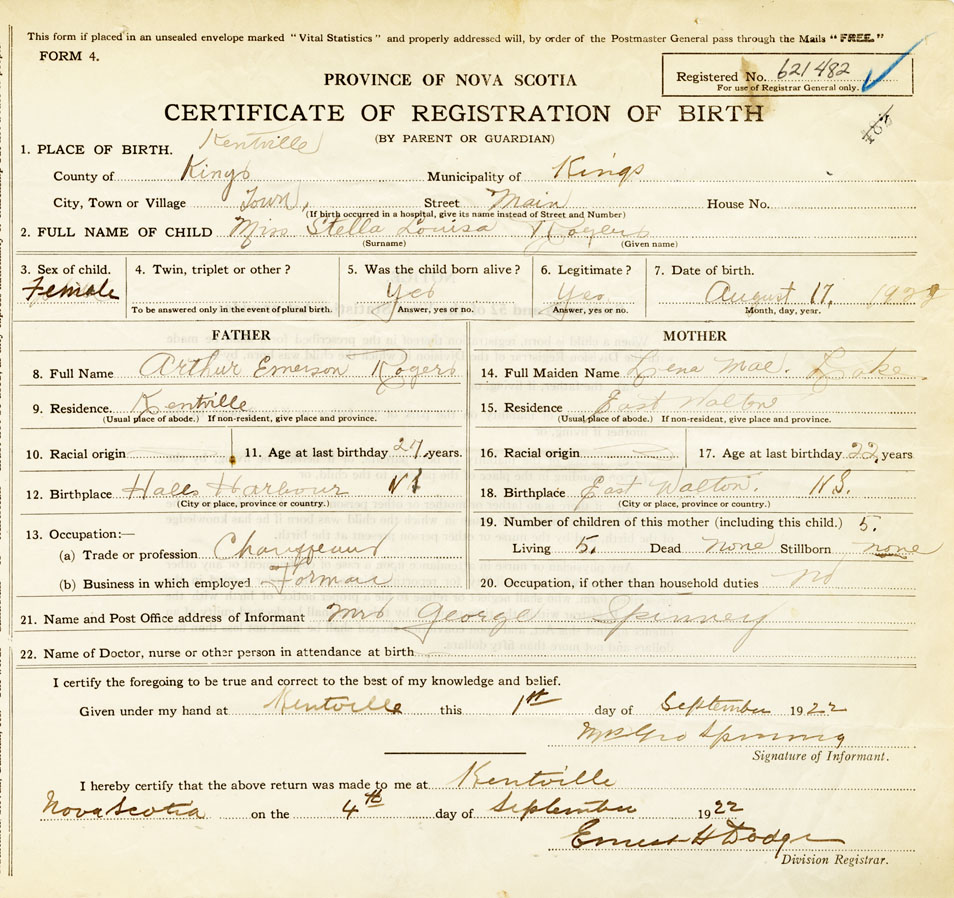 This form if placed in an unsealed envelope marked "Vital Statistics" and properly addressed will, by order of the Postmaster General pass through the Mails "FREE."
FORM 4.
PROVINCE OF NOVA SCOTIA
Registered No. 621482
For use of Registrar General only.
CERTIFICATE OF REGISTRATION OF BIRTH
(BY PARENT OR GUARDIAN)
1. PLACE OF BIRTH. Kentville
County of Kings Municipality of Kings
City, Town or Village Town, Street Main House No.
(If birth occurred in a hospital, give its name instead of Street and Number)
2. FULL NAME OF CHILD Miss Stella Louisa Rogers
(Surname) (Given name)
3. Sex of child. 4. Twin, triplet or other? 5. Was the child born alive? 6. Legitimate? 7. Date of birth.
Female Yes Yes August 17, 1922
To be answered only in the event of plural birth. Answer, yes or no. Answer, yes or no. Month, day, year.
FATHER MOTHER
8. Full Name Arthur Emerson Rogers 14. Full Maiden Name Lena Mae. Lake
9. Residence. Kentville 15. Residence East Walton
(Usual place of abode.) If non-resident, give place and province. (Usual place of abode.) If non-resident, give place and province.
10. Racial origin 11. Age at last birthday 27 years. 16. Racial origin 17. Age at last birthday 22, years
12. Birthplace Halls Harbour NS 18. Birthplace East Walton. N.S.
(City or place, province or country.) (City or place, province or country.)
13. Occupation:— 19. Number of children of this mother (including this child.) 5.
(a) Trade or profession Chauffeaur Living 5. Dead none Stillborn none
(b) Business in which employed 20. Occupation, if other than household duties no
21. Name and Post Office address of Informant Mrs George Spinney
22. Name of Doctor, nurse or other person in attendance at birth
I certify the foregoing to be true and correct to the best of my knowledge and belief.
Given under my hand at Kentville this 1st day of September 1922
Mrs Geo Spinney
Signature of Informant.
I hereby certify that the above return was made to me at Kentville
Nova Scotia on the 4th day of September 1922
Ernest H Dodge
Division Registrar.